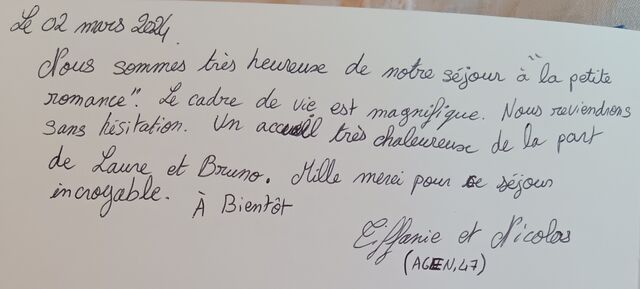 Le 02 mars 2024.
Nous sommes très heureuse de notre séjour à "la petite
romance". Le cadre de vie est magnifique. Nous reviendrons
sans hésitation. Un accueil très chaleureuse de la part
de Laure et Bruno. Mille merci pour ce séjour
incroyable. À Bientôt
Tiffanie et Nicolas
(AGEN, 47)